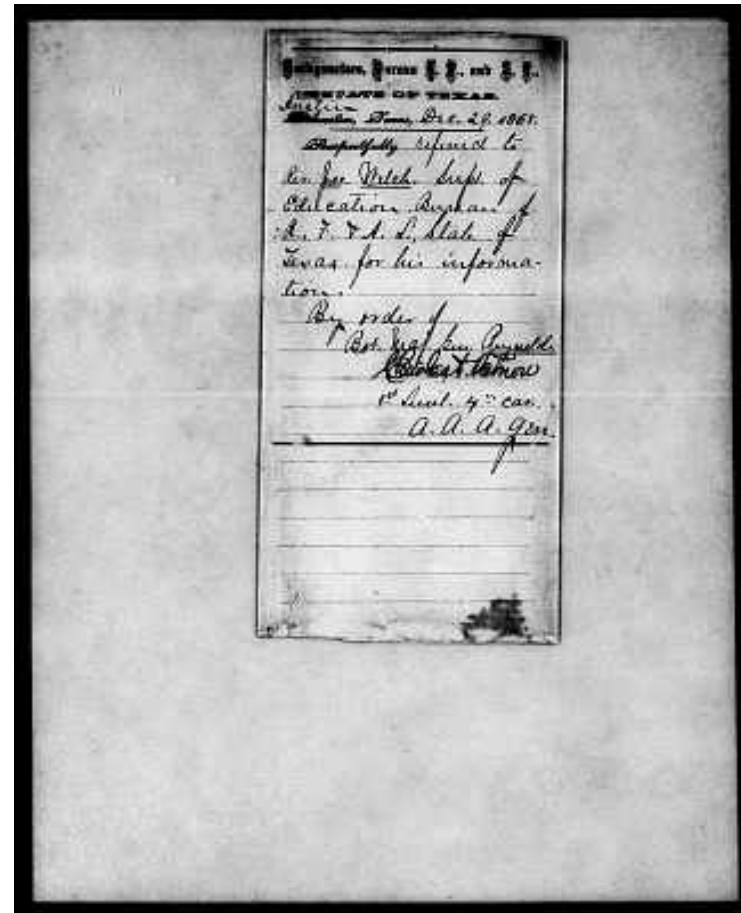 Headquarters, Bureau R. F., and A. L.,
STATE OF TEXAS.
Austin
Texas, Dec. 29, 1868.
Respectfully referred to
Rev Jos Welch Supt of
Education Bureau of
R. F. & A. L. State of
Texas for his informa-
tion.
By order of
Bvt. Maj Gen Reynolds
1st Lieut. 4th Cav.
A. A. A. Gen.